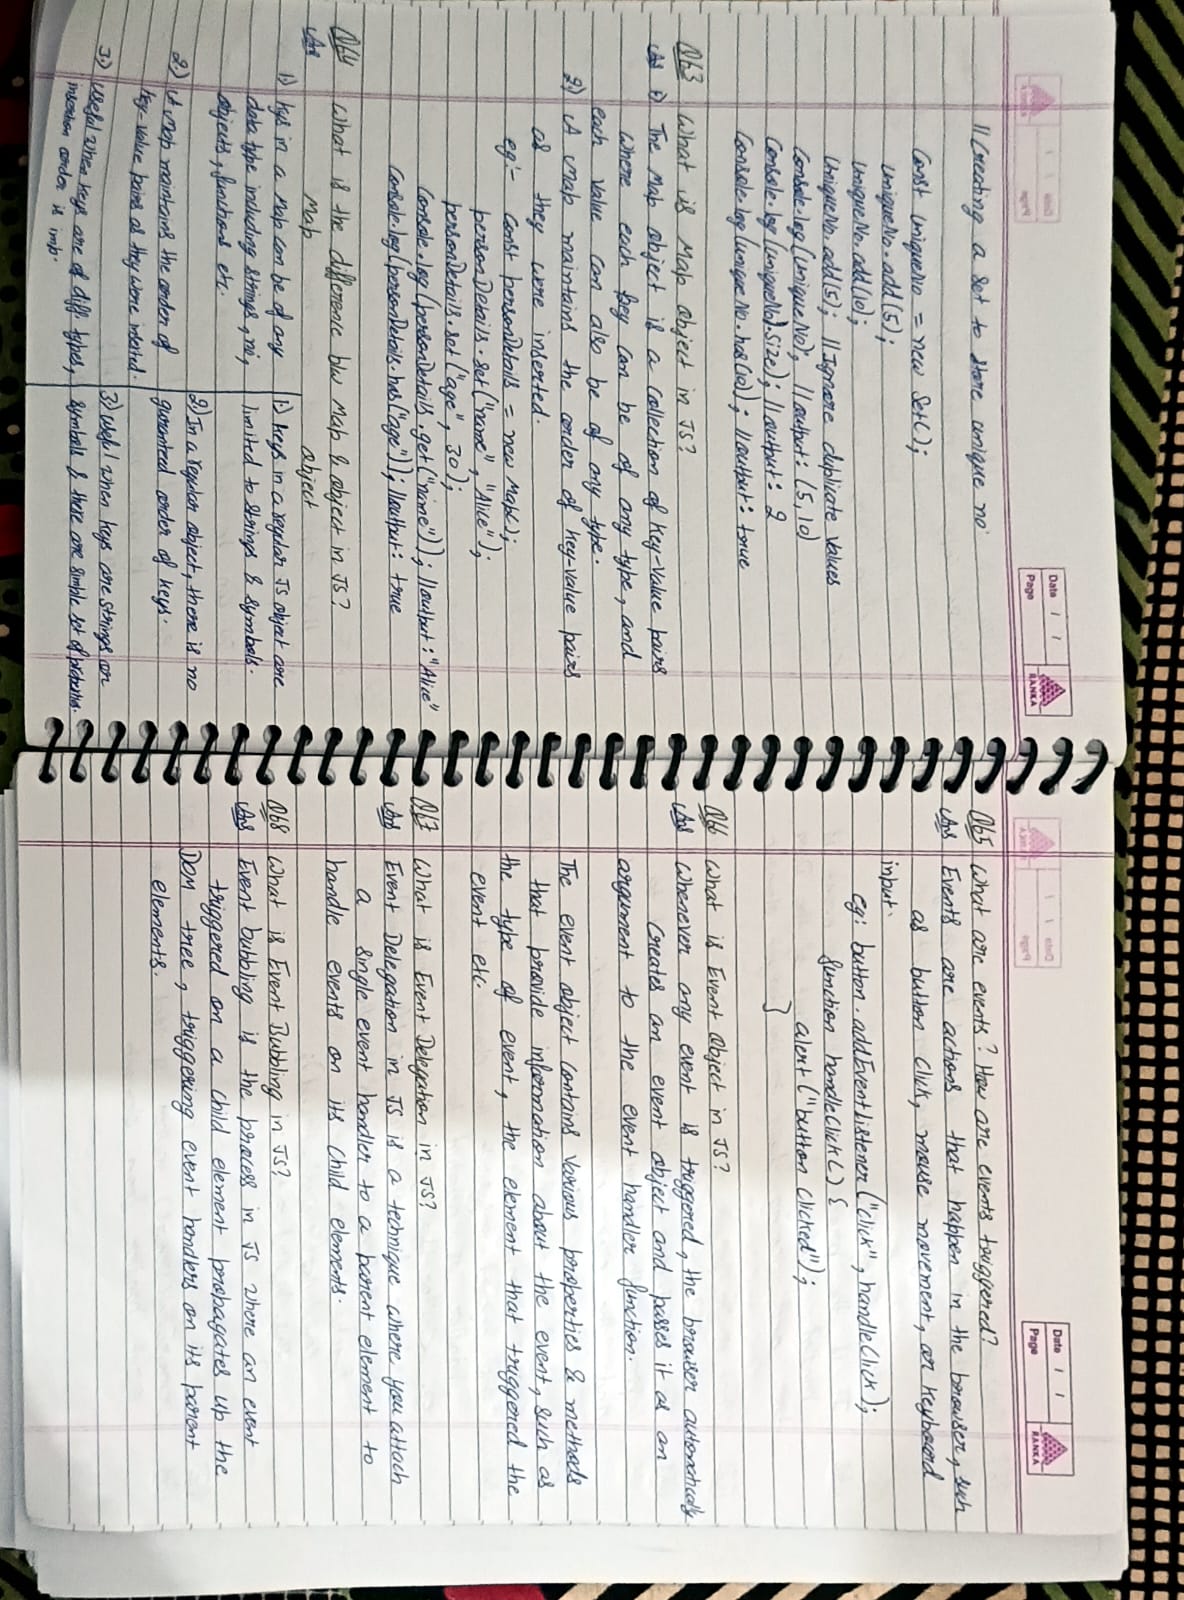 Date / /
Page
RANKA
// Creating a set to store unique no.
Const uniqueNo = new Set();
uniqueNo.add(5);
uniqueNo.add(10);
uniqueNo.add(5); // Ignore duplicate values
Console.log(uniqueNo); // output: (5,10)
Console.log(uniqueNo).size); // output: 2
Console.log(uniqueNo.has(10)); // output: true
Q63 What is Map object in JS?
Ans 1) The Map object is a collection of key-value pairs
where each key can be of any type, and
each value can also be of any type.
2) A Map maintains the order of key-value pairs
as they were inserted.
eg:- const personDetails = new Map();
personDetails.set("name", "Alice");
personDetails.set("age", 30);
Console.log(personDetails.get("name")); // output: "Alice"
Console.log(personDetails.has("age")); // output: true
Q64 What is the difference b/w Map & object in JS?
Ans
Map
1) keys in a Map can be of any
data type including strings, no,
objects, functions etc.
2.) A Map maintains the order of
key-value pairs as they were inserted.
3.) Useful when keys are of diff types,
insertion order is imp.
object
1.) keys in a regular JS object are
limited to strings & symbols.
2) In a regular object, there is no
guaranteed order of keys.
3) Useful when keys are strings or
symbols & there are simple set of properties.
Date / /
Page
RANKA
Q65 What are events? How are events triggered?
Ans Events are actions that happen in the browser, such
as button click, mouse movement, or keyboard
input.
eg: button.addEventListener("click", handleClick);
function handleClick() {
alert("button clicked");
}
Q66 What is Event object in JS?
Ans Whenever any event is triggered, the browser automatically
creates an event object and passes it as an
argument to the event handler function.
The event object contains various properties & methods
that provide information about the event, such as
the type of event, the element that triggered the
event etc.
Q67 What is Event Delegation in JS?
Ans Event Delegation in JS is a technique where you attach
a single event handler to a parent element to
handle events on its child elements.
Q68 What is Event Bubbling in JS?
Ans Event bubbling is the process in JS where an event
triggered on a child element propagates up the
DOM tree, triggering event handlers on its parent
elements.